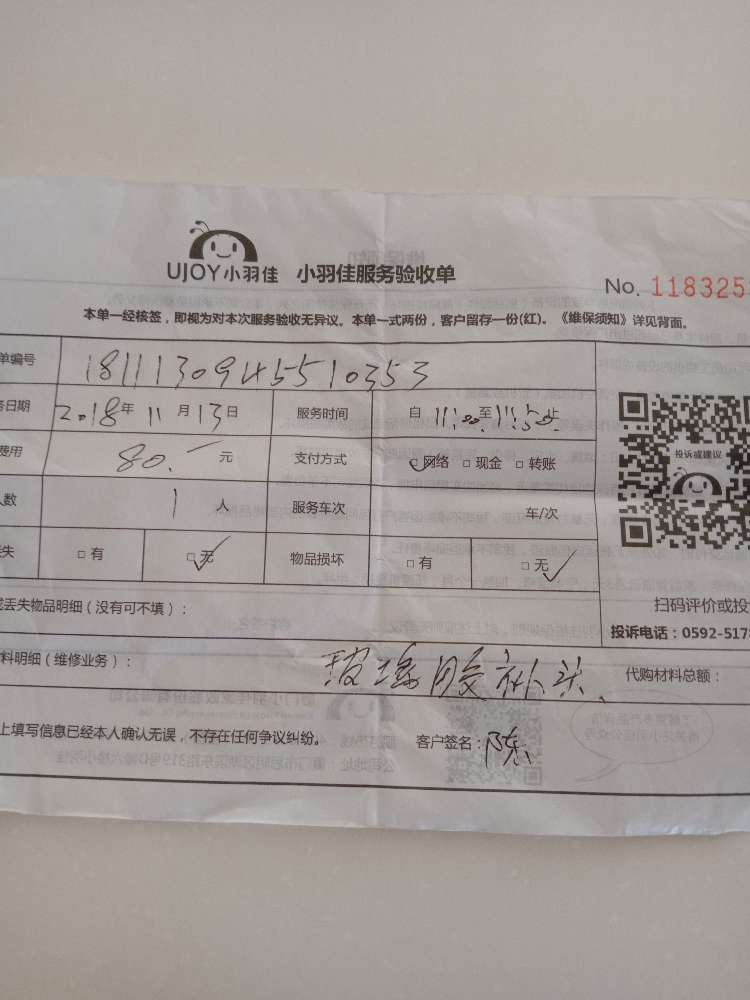 UJOY小羽佳 小羽佳服务验收单
No. 118325
本单一经核签，即视为对本次服务验收无异议。本单一式两份，客户留存一份(红)。《维保须知》详见背面。
单编号 1811130945510353
务日期 2018年 11 月 13 日 服务时间 自 11:00 至 11:50 止
费用 80.- 元 支付方式 网络 □ 现金 □ 转账
人数 1 人 服务车次 车/次
丢失 □ 有 □ 无 物品损坏 □ 有 □ 无
投诉或建议
扫码评价或投
或丢失物品明细（没有可不填）：
投诉电话：0592-5178
料明细（维修业务）： 玻璃胶补头、
代购材料总额：
上填写信息已经本人确认无误，不存在任何争议纠纷。 客户签名：陈